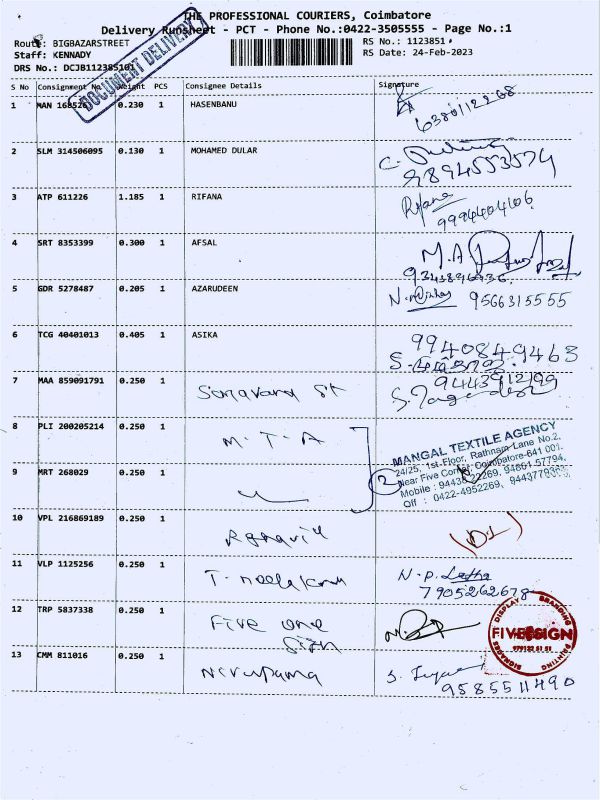 THE PROFESSIONAL COURIERS, Coimbatore
Delivery Runsheet - PCT - Phone No.:0422-3505555 - Page No.:1
Route: BIGBAZARSTREET
RS No.: 1123851
Staff: KENNADY
RS Date: 24-Feb-2023
DRS No.: DCJB112385101
DOCUMENT DELIVERY
S No Consignment No Weight PCS Consignee Details Signature
1 MAN 0.230 1 HASENBANU
6380112268
2 SLM 314506095 0.130 1 MOHAMED DULAR
9894553574
3 ATP 611226 1.185 1 RIFANA Rifana
9994404106
4 SRT 8353399 0.300 1 AFSAL M.A
5 GDR 5278487 0.205 1 AZARUDEEN 9566315555
6 TCG 40401013 0.405 1 ASIKA 9940849463
7 MAA 859091791 0.250 1 9443912199
8 PLI 200205214 0.250 1 M.T.A
MANGAL TEXTILE AGENCY
24/25, 1st Floor, Rathnam Lane No.2,
Near Five Corner, Coimbatore-641 001.
9 MRT 268029 0.250 1 2
Off : 0422-4952269,
10 VPL 216869189 0.250 1
11 VLP 1125256 0.250 1 N.P. Latha
7905262678
12 TRP 5837338 0.250 1 Five one
Sign
DISPLAY BRANDING
FIVE SIGN
SIGNAGES PRINTING
13 CMM 811016 0.250 1 Nirupama
9585511490